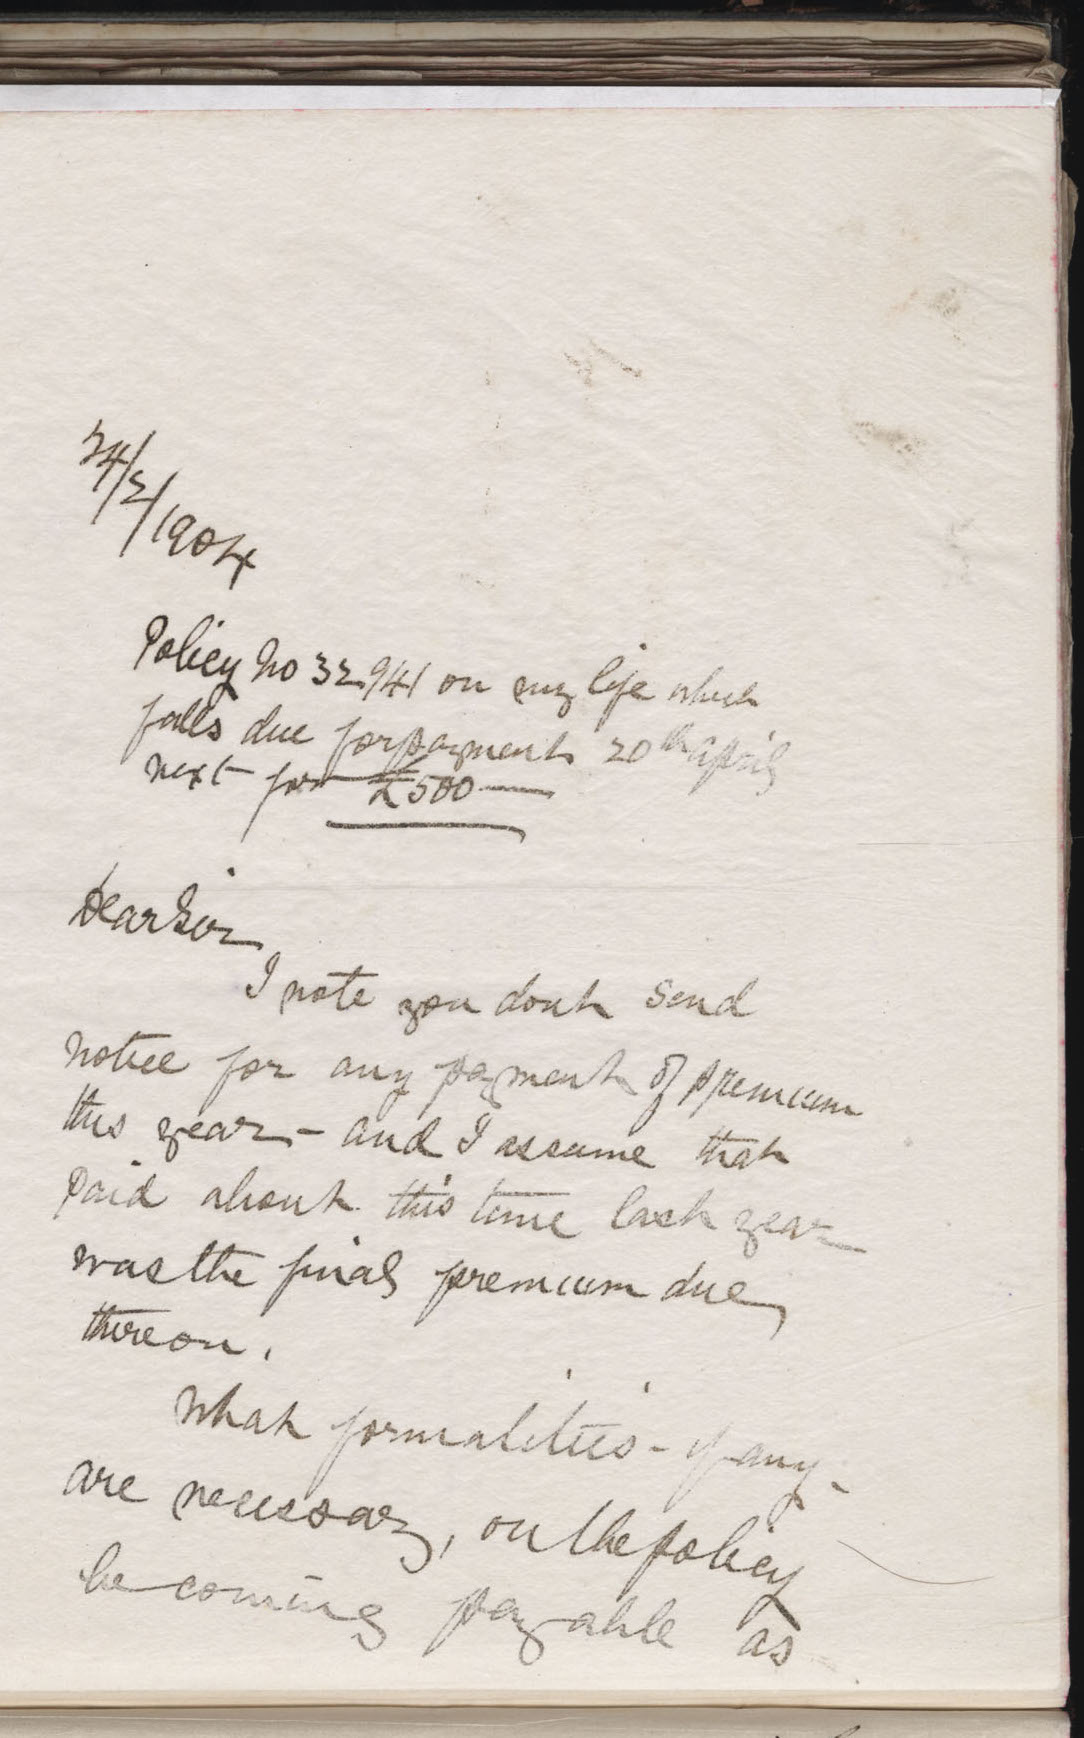 24/2/1904
Policy No 32941 on my life which
falls due for payment 20th April
next for £500
Dear Sir,
I note you dont send
notice for any payment of premium
this year - and I assume that
paid about this time last year
was the final premium due,
thereon.
What formalities - if any -
are necessary, on the policy
becoming payable as